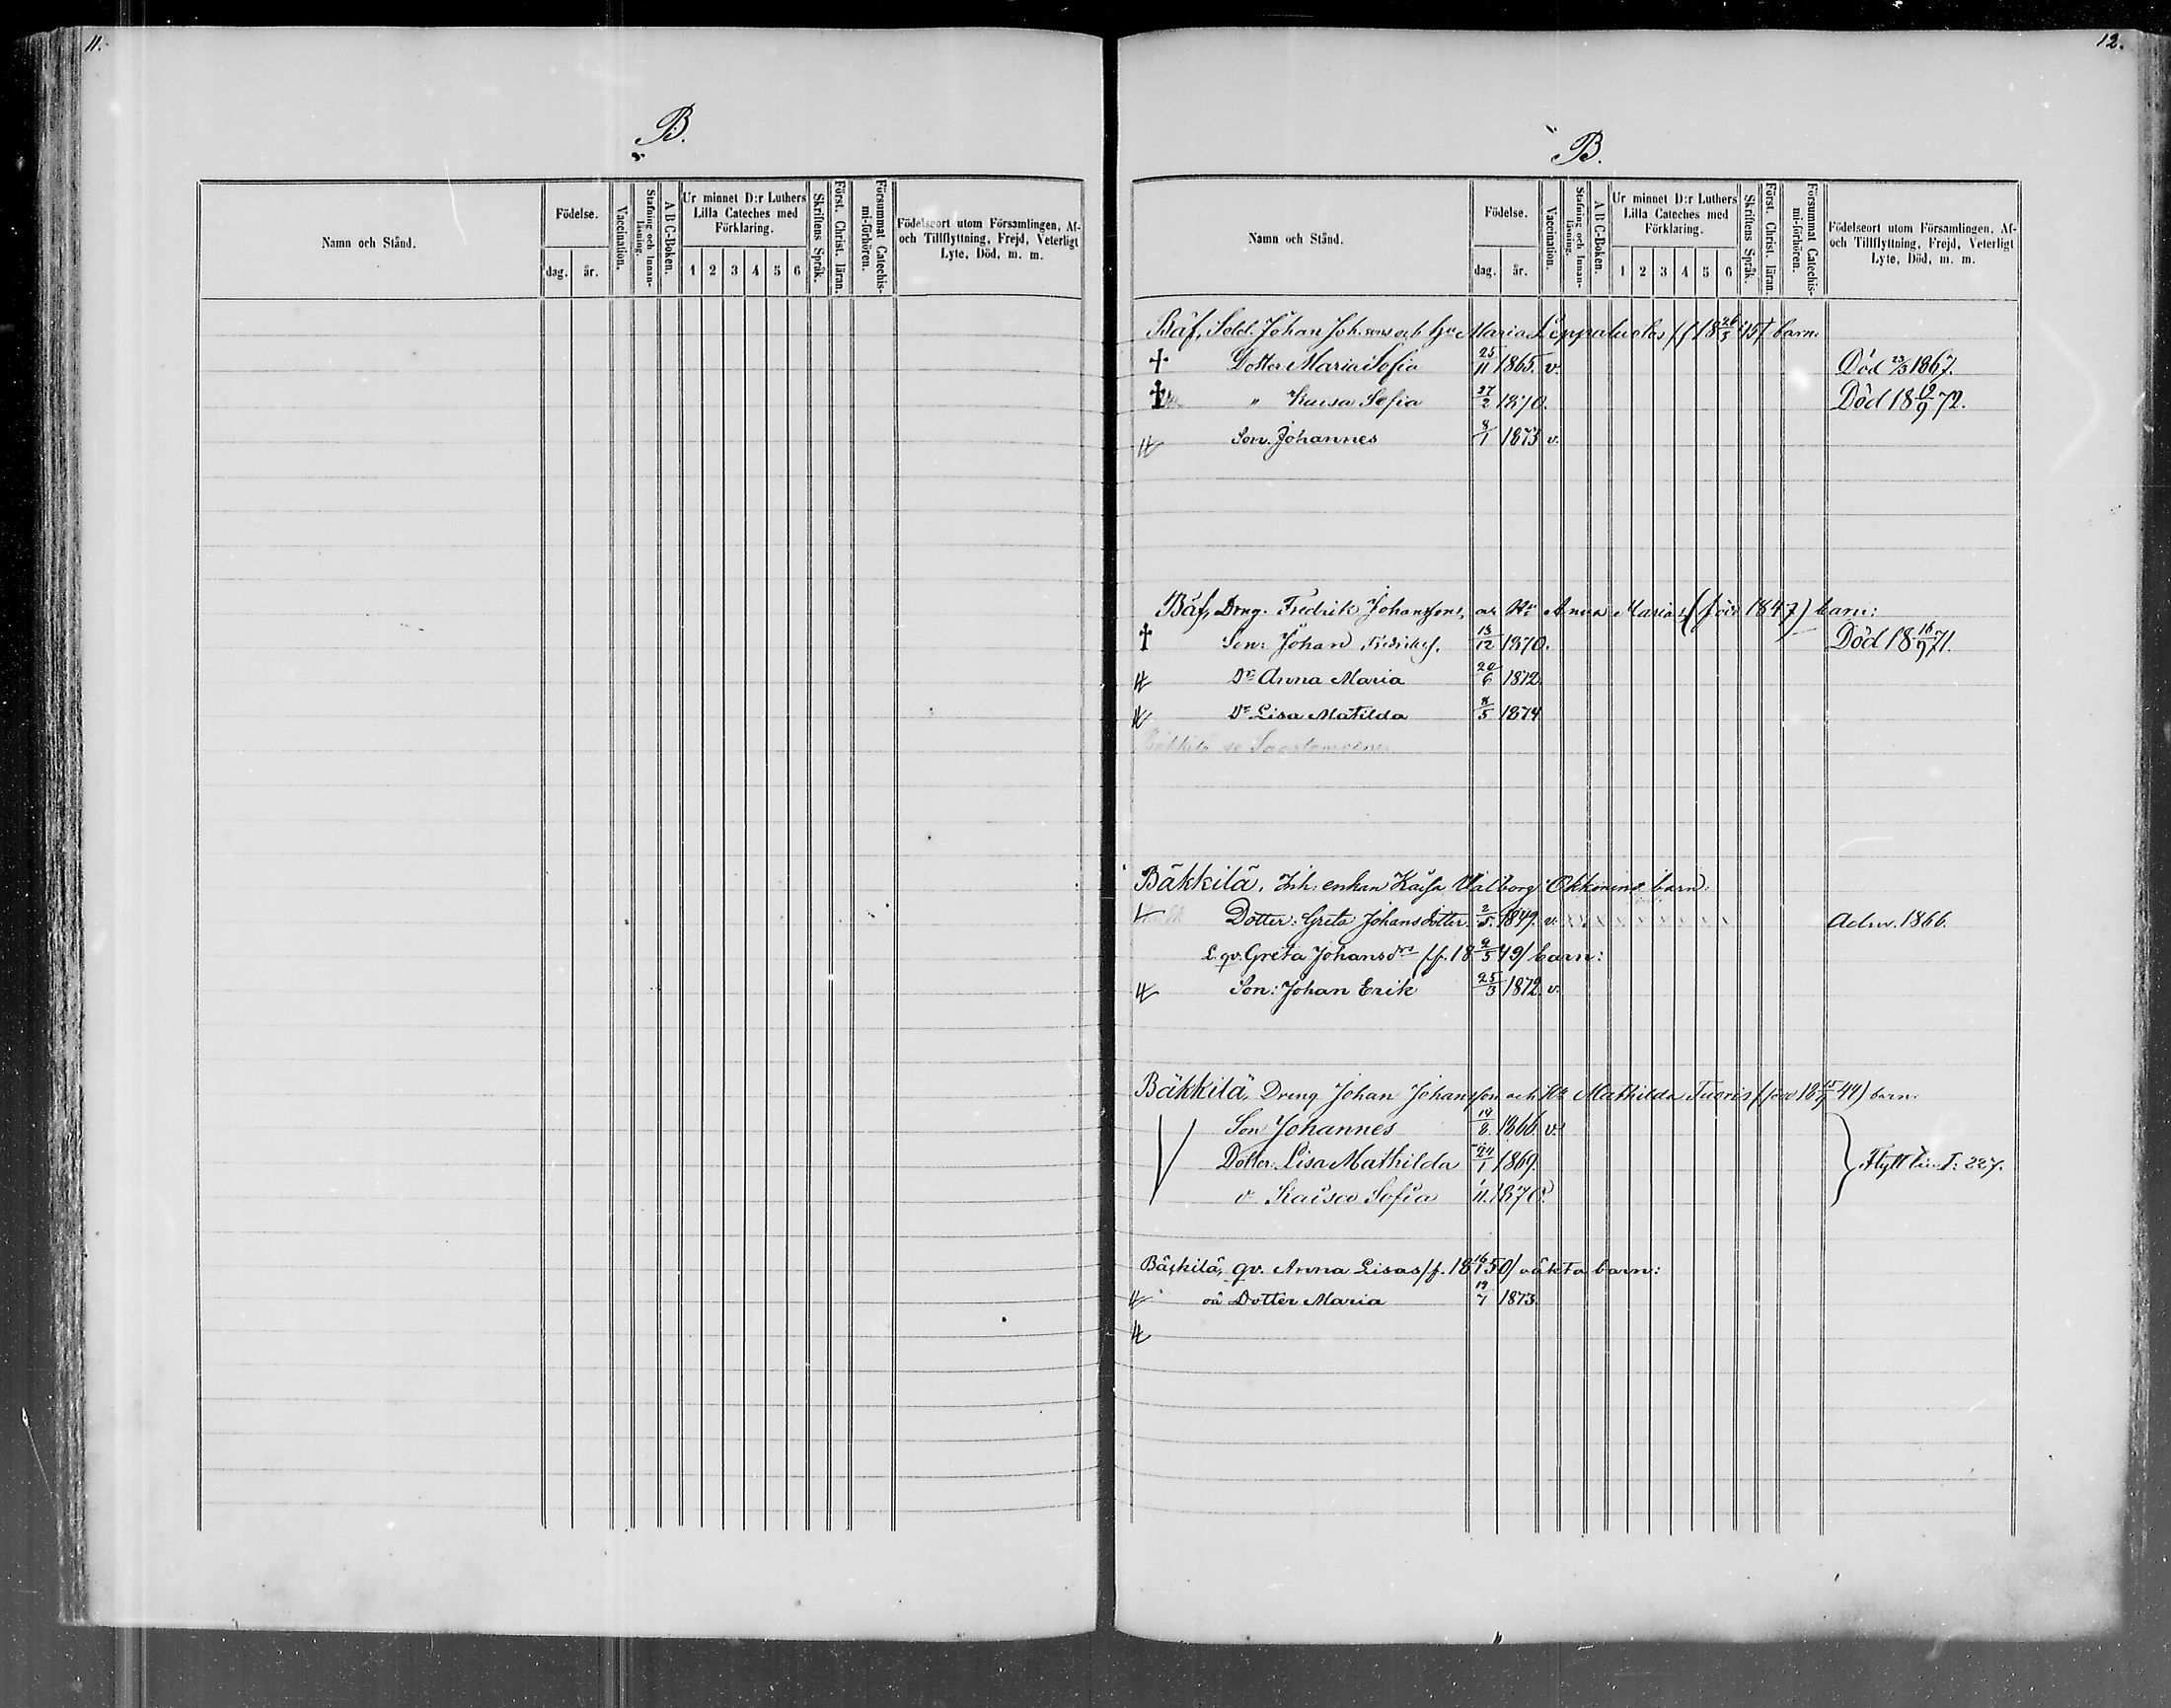 11.
B.
Namn och Stånd.
Födelse.
dag.
år.
Vaccination.
Stafning och Innanläsning.
A B C-Boken.
Ur minnet D:r Luthers
Lilla Cateches med
Förklaring.
1 2 3 4 5 6
Skriftens Språk.
Först. Christ. läran.
Försummat Catechis-
mi-förhören.
Födelseort utom Församlingen, Af-
och Tillflyttning, Frejd, Veterligt
Lyte, Död, m. m.
12.
B.
Namn och Stånd.
Födelse.
dag.
år.
Vaccination.
Stafning och Innanläsning.
A B C-Boken.
Ur minnet D:r Luthers
Lilla Cateches med
Förklaring.
1 2 3 4 5 6
Skriftens Språk.
Först. Christ. läran.
Försummat Catechis-
mi-förhören.
Födelseort utom Församlingen, Af-
och Tillflyttning, Frejd, Veterligt
Lyte, Död, m. m.
Bäf, Sold. Johan Johanssons och hu Maria barn
† Dotter Maria Sofia 25/11 1865. v. Död 23/3 1867.
† " Kaisa Sofia 27/2 1870. Död 18 19/9 72.
Son. Johannes 8/1 1873 v.
Bäf, Dreg. Fredrik Johanssons, och Hu Anna Marias (född 1847) barn:
† Son: Johan Fredriksf. 13/12 1870. Död 18 16/9 71.
Dr Anna Maria 20/6 1872
Dr Lisa Matilda 8/5 1874
Bäkkilä, Inh. enkan Kaisa Valborg Okkonens barn:
Dotter: Greta Johansdotter 2/5. 1849. v. Admi. 1866.
L. qv. Greta Johansdrs /f. 18 2/5 49/ barn:
Son: Johan Erik 25/3 1872 v.
Bäkkilä, Dreng Johan Johansson och Hu Mathilda Tuoris (född 18 15/7 44) barn.
Son Johannes 19/8. 1866. v.
Dotter. Lisa Mathilda 24/1 1869. Flytt till T: 227.
v Kaisa Sofia 1/11. 1870.
Bäckilä, qv. Anna Lisas /f. 18 16/1 50/ oäkta barn:
oä Dotter Maria 19/7 1873